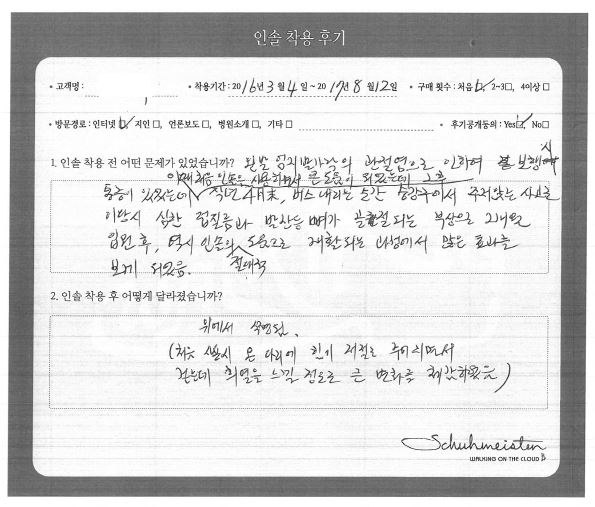 인솔 착용 후기
• 고객명 :
• 착용기간 : 2016년 3월 4일 ~ 2017년 8월 12일
• 구매 횟수 : 처음☑, 2~3□, 4이상□
• 방문경로 : 인터넷☑, 지인□, 언론보도□, 병원소개□, 기타□
• 후기공개동의 : Yes☑, No□
1. 인솔 착용 전 어떤 문제가 있었습니까? 왼발 엄지발가락의 관절염으로 인하여 보행시
이때 처음 인솔을 사용하면서 큰 도움이 되었는데 그후
통증이 있었는데 작년 4月末, 버스 내리는 순간 승강구에서 주저앉는 사고로
이만시 심한 접질름과 발산등 뼈가 골절되는 부상으로 2개월
입원 후, 역시 인솔의 절대적 도움으로 재활되는 과정에서 많은 효과를
보게 되었음.
2. 인솔 착용 후 어떻게 달라졌습니까?
위에서 설명됨.
(처음 신발시 온 다리에 힘이 저절로 주어지면서
걷는데 희열을 느낄 정도로 큰 변화를 체감하였음)
Schuhmeister
WALKING ON THE CLOUD 9